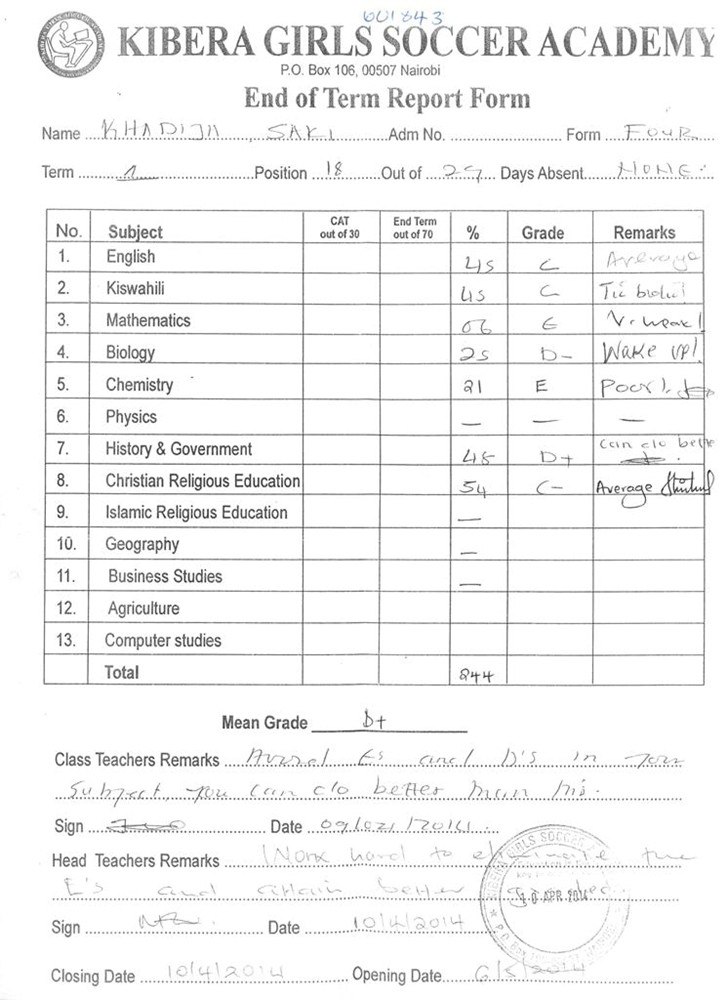 601843
KIBERA GIRLS SOCCER ACADEMY
P.O. Box 106, 00507 Nairobi
End of Term Report Form
Name KHADIJA, SAKI Adm No. Form FOUR
Term 1 Position 18 Out of 29 Days Absent NONE
No. Subject CAT out of 30 End Term out of 70 % Grade Remarks
1. English 45 C Average
2. Kiswahili 45 C Tia bidii!
3. Mathematics 06 E V. weak!
4. Biology 25 D- Wake up!
5. Chemistry 21 E Poor!
6. Physics — — —
7. History & Government 48 D+ Can do better
8. Christian Religious Education 54 C- Average
9. Islamic Religious Education —
10. Geography —
11. Business Studies —
12. Agriculture
13. Computer studies
Total 244
Mean Grade D+
Class Teachers Remarks Avoid Es and D's in your
subject, you can do better than this.
Sign Date
Head Teachers Remarks Work hard to eliminate the
E's and attain better
10 APR 2014
Sign Date 10/4/2014
Closing Date 10/4/2014 Opening Date 6/5/2014